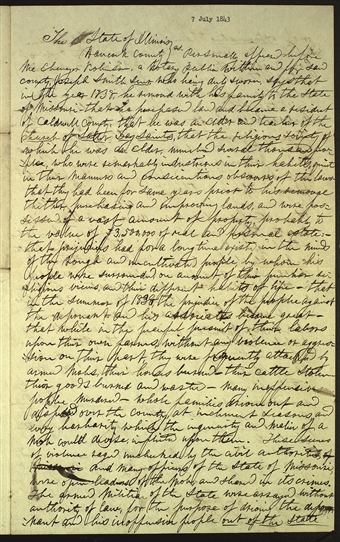 7 July 1843
The State of Illinois
Hancock County ss Personally appeared before
me Ebenezer Robinson, a Notary Public within and for said
county Joseph Smith Senr who being duly sworn says that
in the year 1838 he removed with his family to the State
of Missouri that he purchased land and became a resident
of Caldwell County, that he was an elder and teacher of the
Church of Latter Day Saints, that the religious society, of
which he was an Elder, numbered several thousand
who were remarkably industrious in their habits,
in their manners and conscientious observers of the laws
that they had been for some years prior to his removal
thither purchasing and improving lands, and were possessed
of a vast amount of property, probably to
the value of $3,500.000 of real and personal estate
that prejudices had for a long time existed in the minds
of the rough and uncultivated people by whom this
people were surrounded on account of their peculiar
religious views and their different habits of life - that
in the summer of 1838 the prejudice of the people against
the deponent and his associates became great -
that while in the peaceful pursuit of their labors
upon their own farms, without any violence or
on their part they were frequently attacked by
armed mobs, their houses burned their cattle stolen
their goods burned and wasted - many inoffensive
people murdered - whole families driven out and
dispersed over the country, at inclement seasons and
every barbarity which the ingenuity and malice of a
Mob could devise, inflicted upon them. These scenes
of violence raged unchecked by the civil authorities
and many officers of the State of Missouri
were open leaders of the Mob and shared in its crimes.
The armed Militia of the State were arrayed without
authority of law, for the purpose of driving the
and his inoffensive people out of the State